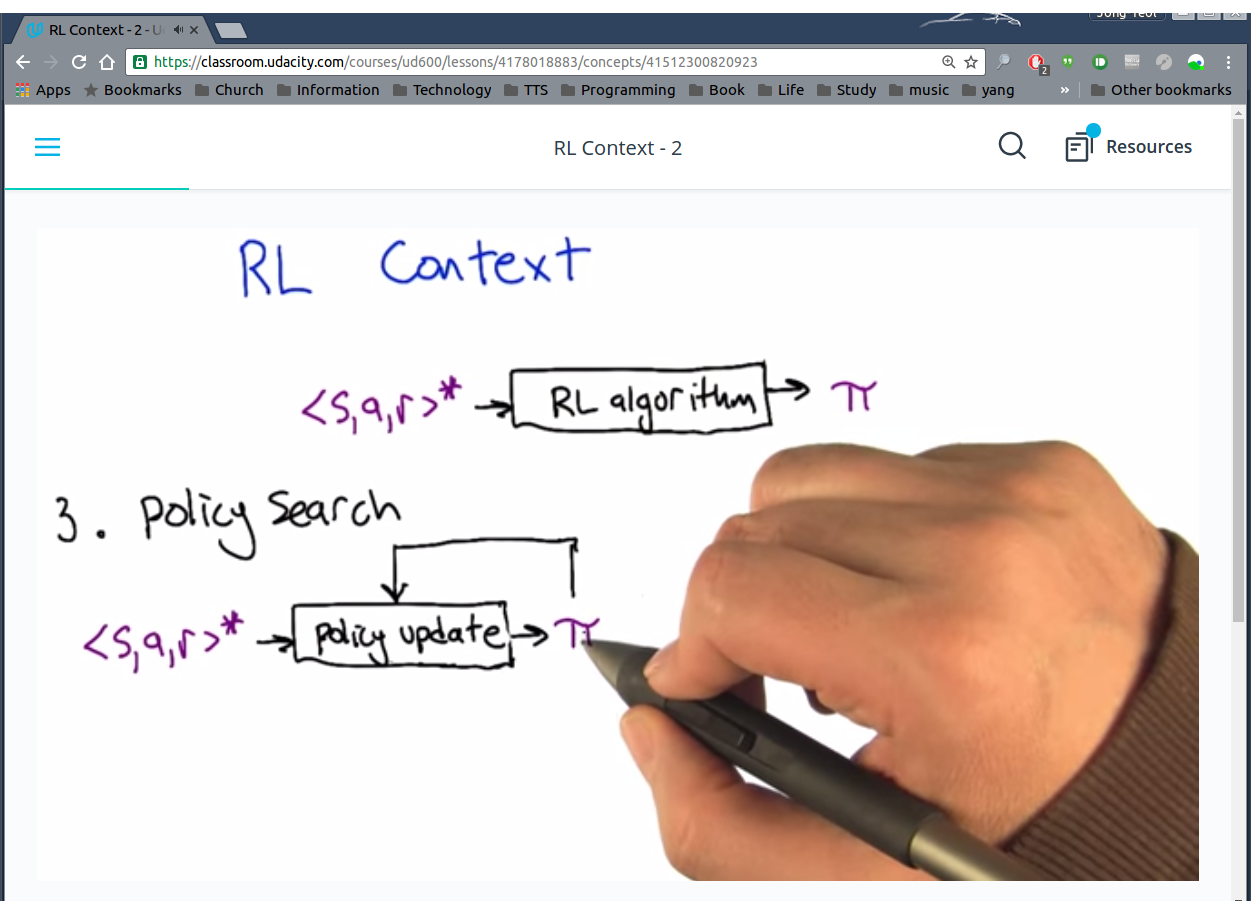 RL Context - 2 - U
https://classroom.udacity.com/courses/ud600/lessons/4178018883/concepts/41512300820923
2
Apps Bookmarks Church Information Technology TTS Programming Book Life Study music yang » Other bookmarks
RL Context - 2
Resources
RL Context
<s,a,r>* → RL algorithm → π
3. Policy Search
<s,a,r>* → policy update → π